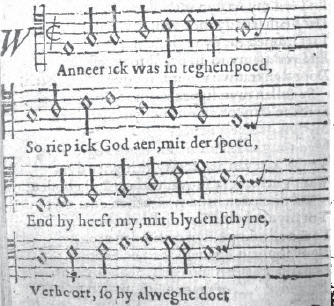 W
Anneer ick was in teghenſpoed,
So riep ick God aen,mit der ſpoed,
End hy heeft my,mit blyden ſchyne,
Verhoort, ſo hy alweghe doet